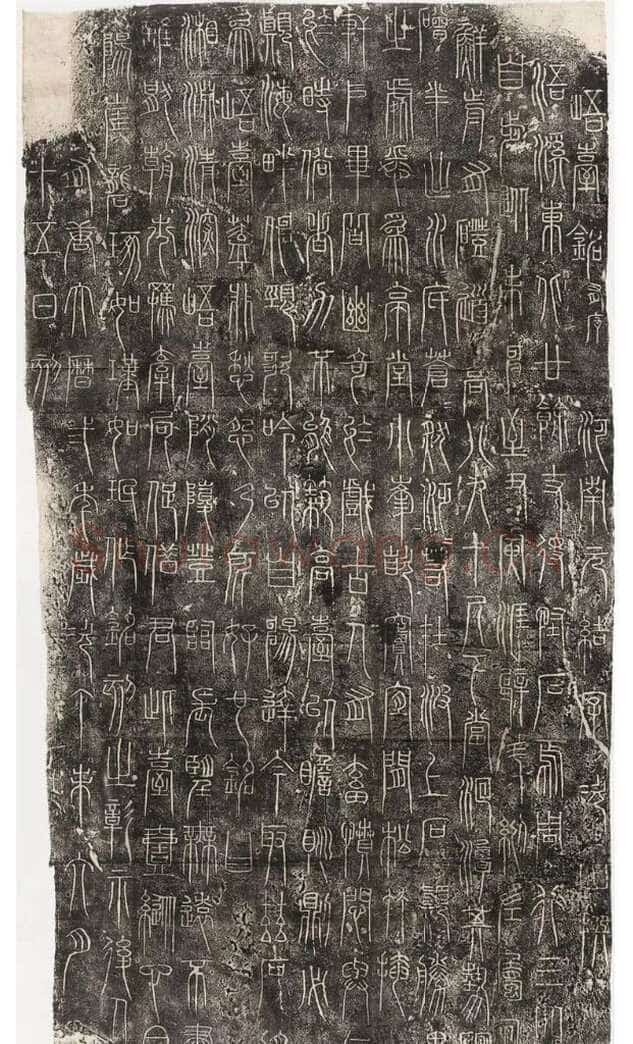 峿臺銘有序
河南元結字次山撰
浯溪東北廿餘丈得怪石焉周行三四
百步從未申至丑寅涯壁斗絕左屬回
鮮前有磴道高八九十尺下當洄潭其勢硱
磳半出水底蒼然泛若在波上石巔勝異
之處悉為亭堂小峰欹竇宜間松竹掩
軒戶畢皆幽奇於戲古人有畜憤悶與
於時俗者力不能築高臺以瞻眺則必
巔海畔伸頸歌吟以自暢達今取茲石
為峿臺蓋非愁怨乃所好也銘曰
湘淵清深峿臺陗陵登臨長望無遠不盡
誰厭朝市羈牽局促借君此臺壹縱心目
陽崖礱琢如瑾如珉作銘刻之彰示後人
有唐大曆二年歲次丁未六月
十五日刻